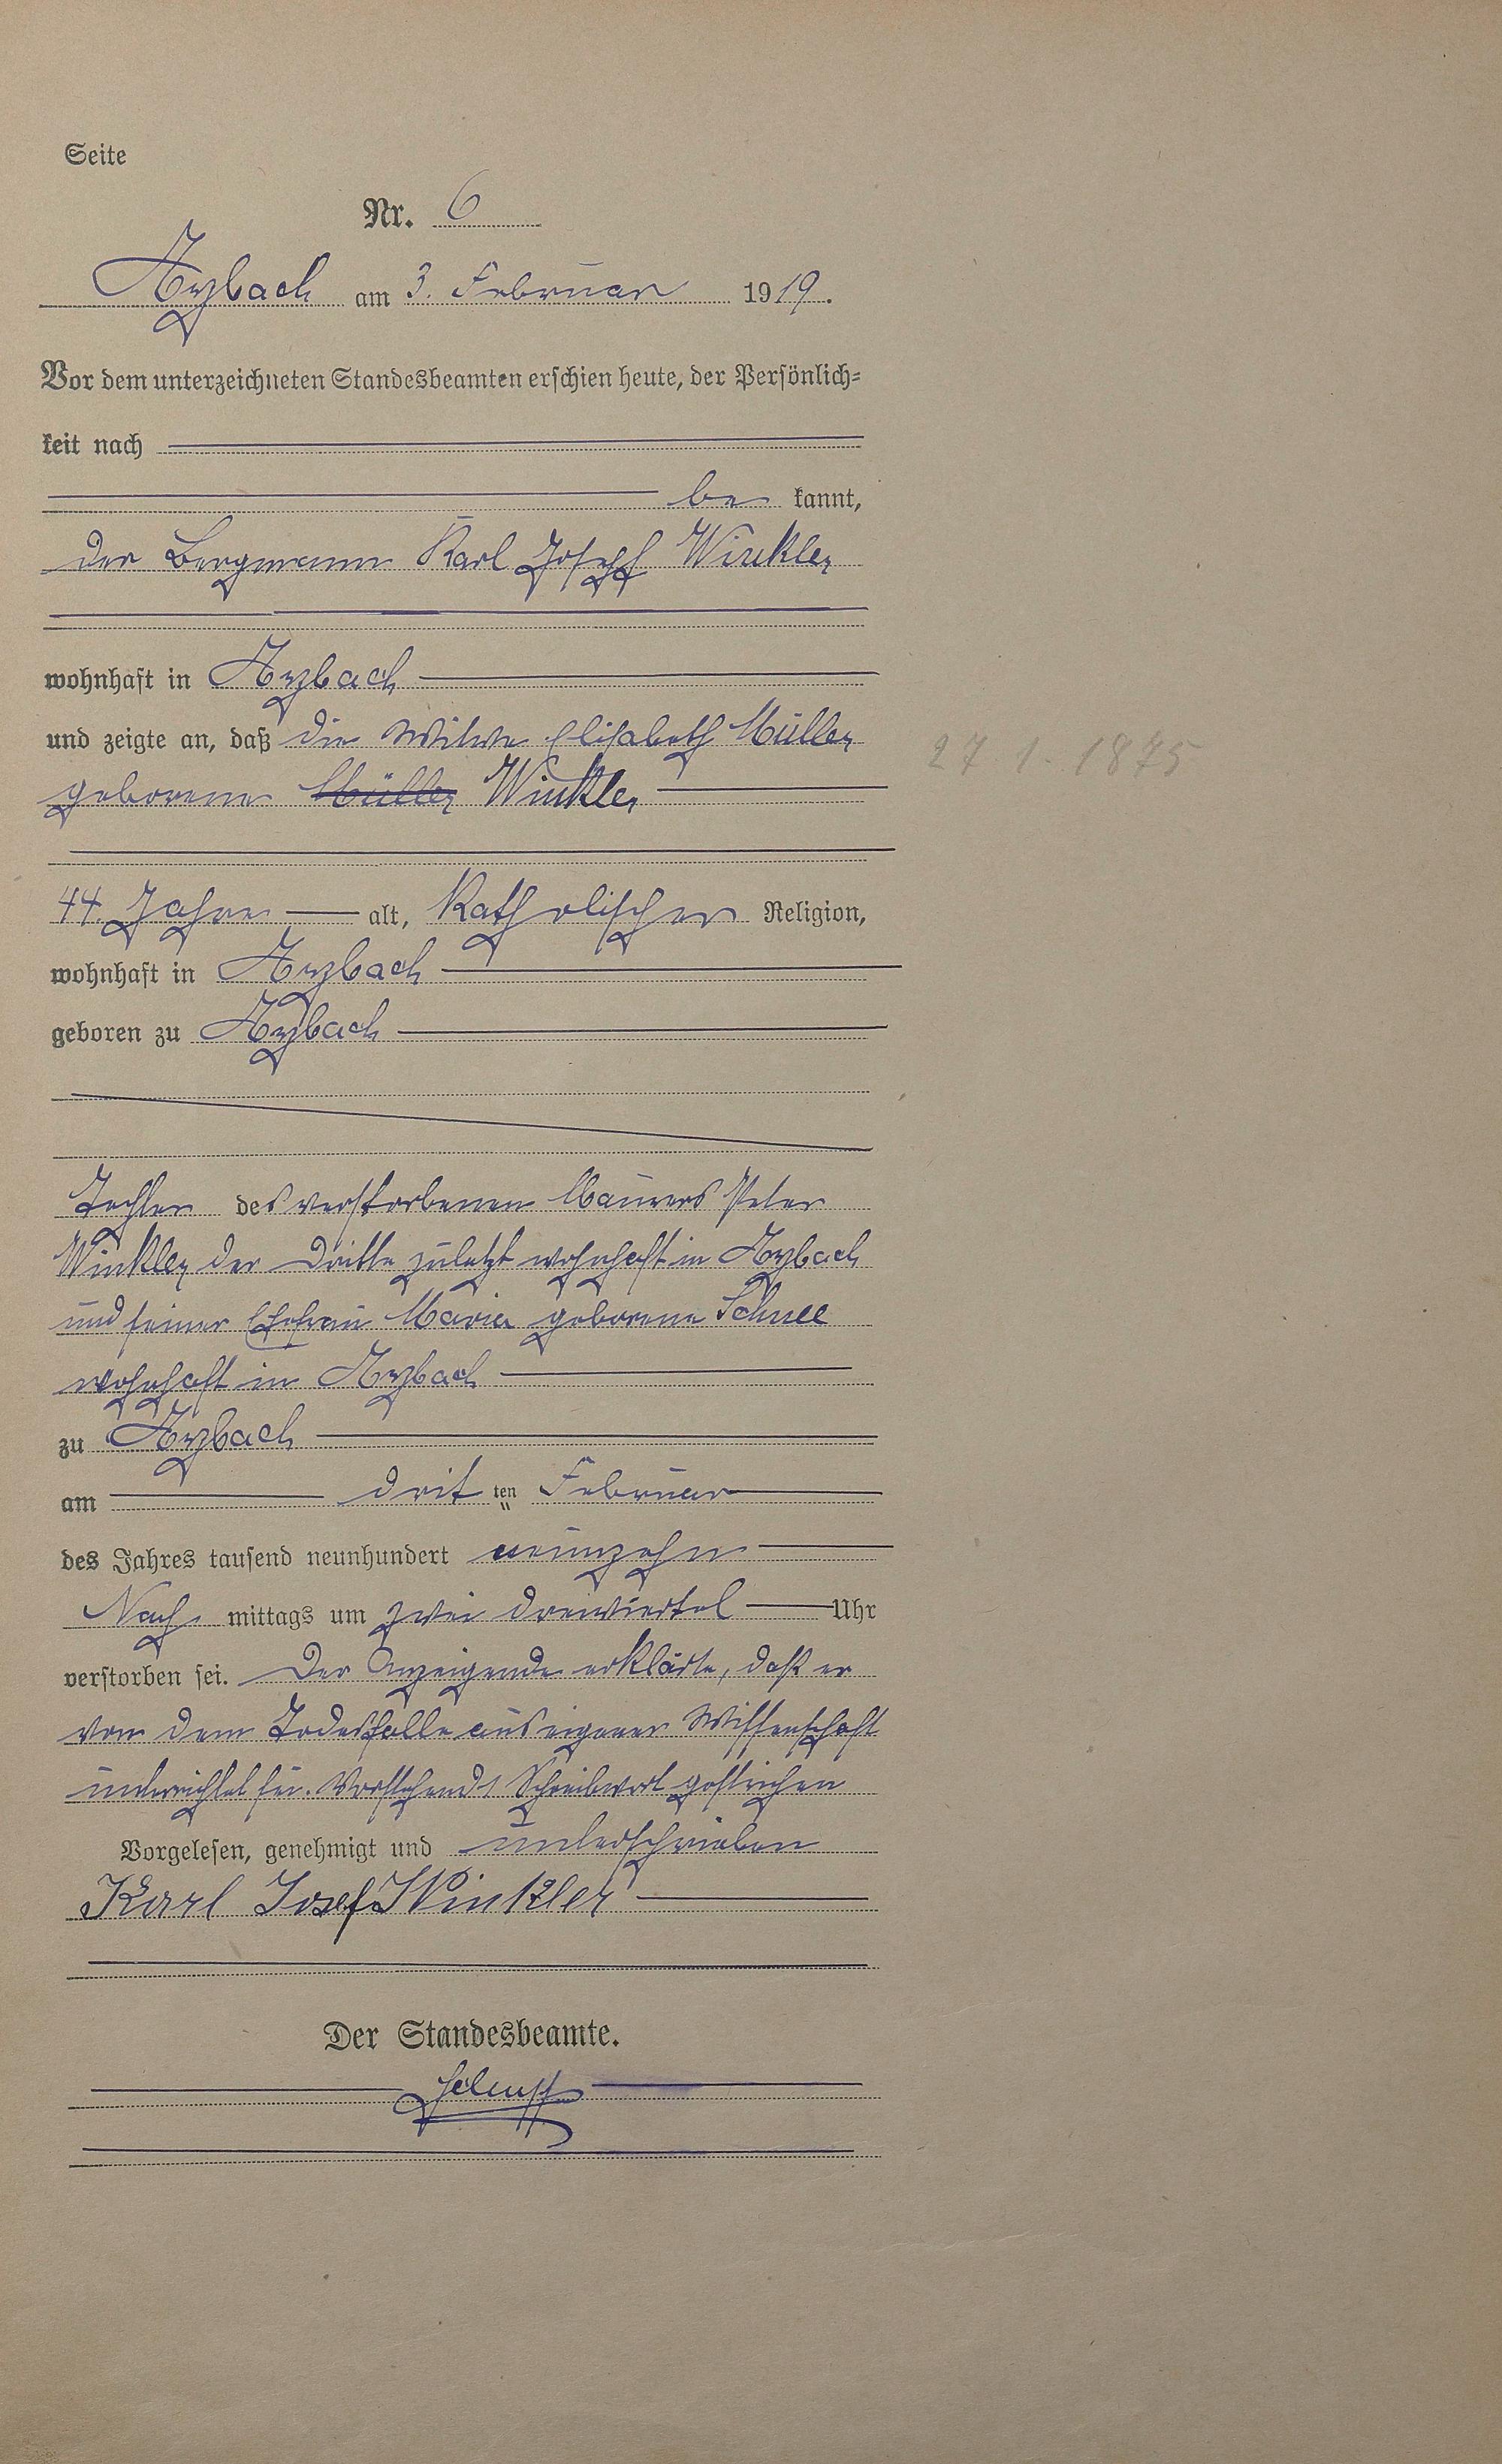 Seite
Nr. 6
Arzbach am 3. Februar 1919.
Vor dem unterzeichneten Standesbeamten erschien heute, der Persönlich-
keit nach
be kannt,
der Bergmann Karl Joseph Winkler
wohnhaft in Arzbach
und zeigte an, daß die Witwe Elisabeth Müller
27.1.1875
geborene Müller Winkler
44 Jahre alt, Katholischer Religion,
wohnhaft in Arzbach
geboren zu Arzbach
Tochter des verstorbenen Maurers Peter
Winkler der Dritte zuletzt wohnhaft in Arzbach
und seiner Ehefrau Maria geborene Schnee
wohnhaft in Arzbach
zu Arzbach
am dritten Februar
des Jahres tausend neunhundert neunzehn
Nach mittags um zwei dreiviertel Uhr
verstorben sei. Der Anzeigende erklärte, daß er
von dem Todesfalle aus eigener Wissenschaft
unterrichtet sei. Vorstehend 1 Schreibwort gestrichen
Vorgelesen, genehmigt und unterschrieben
Karl Josef Winkler
Der Standesbeamte.